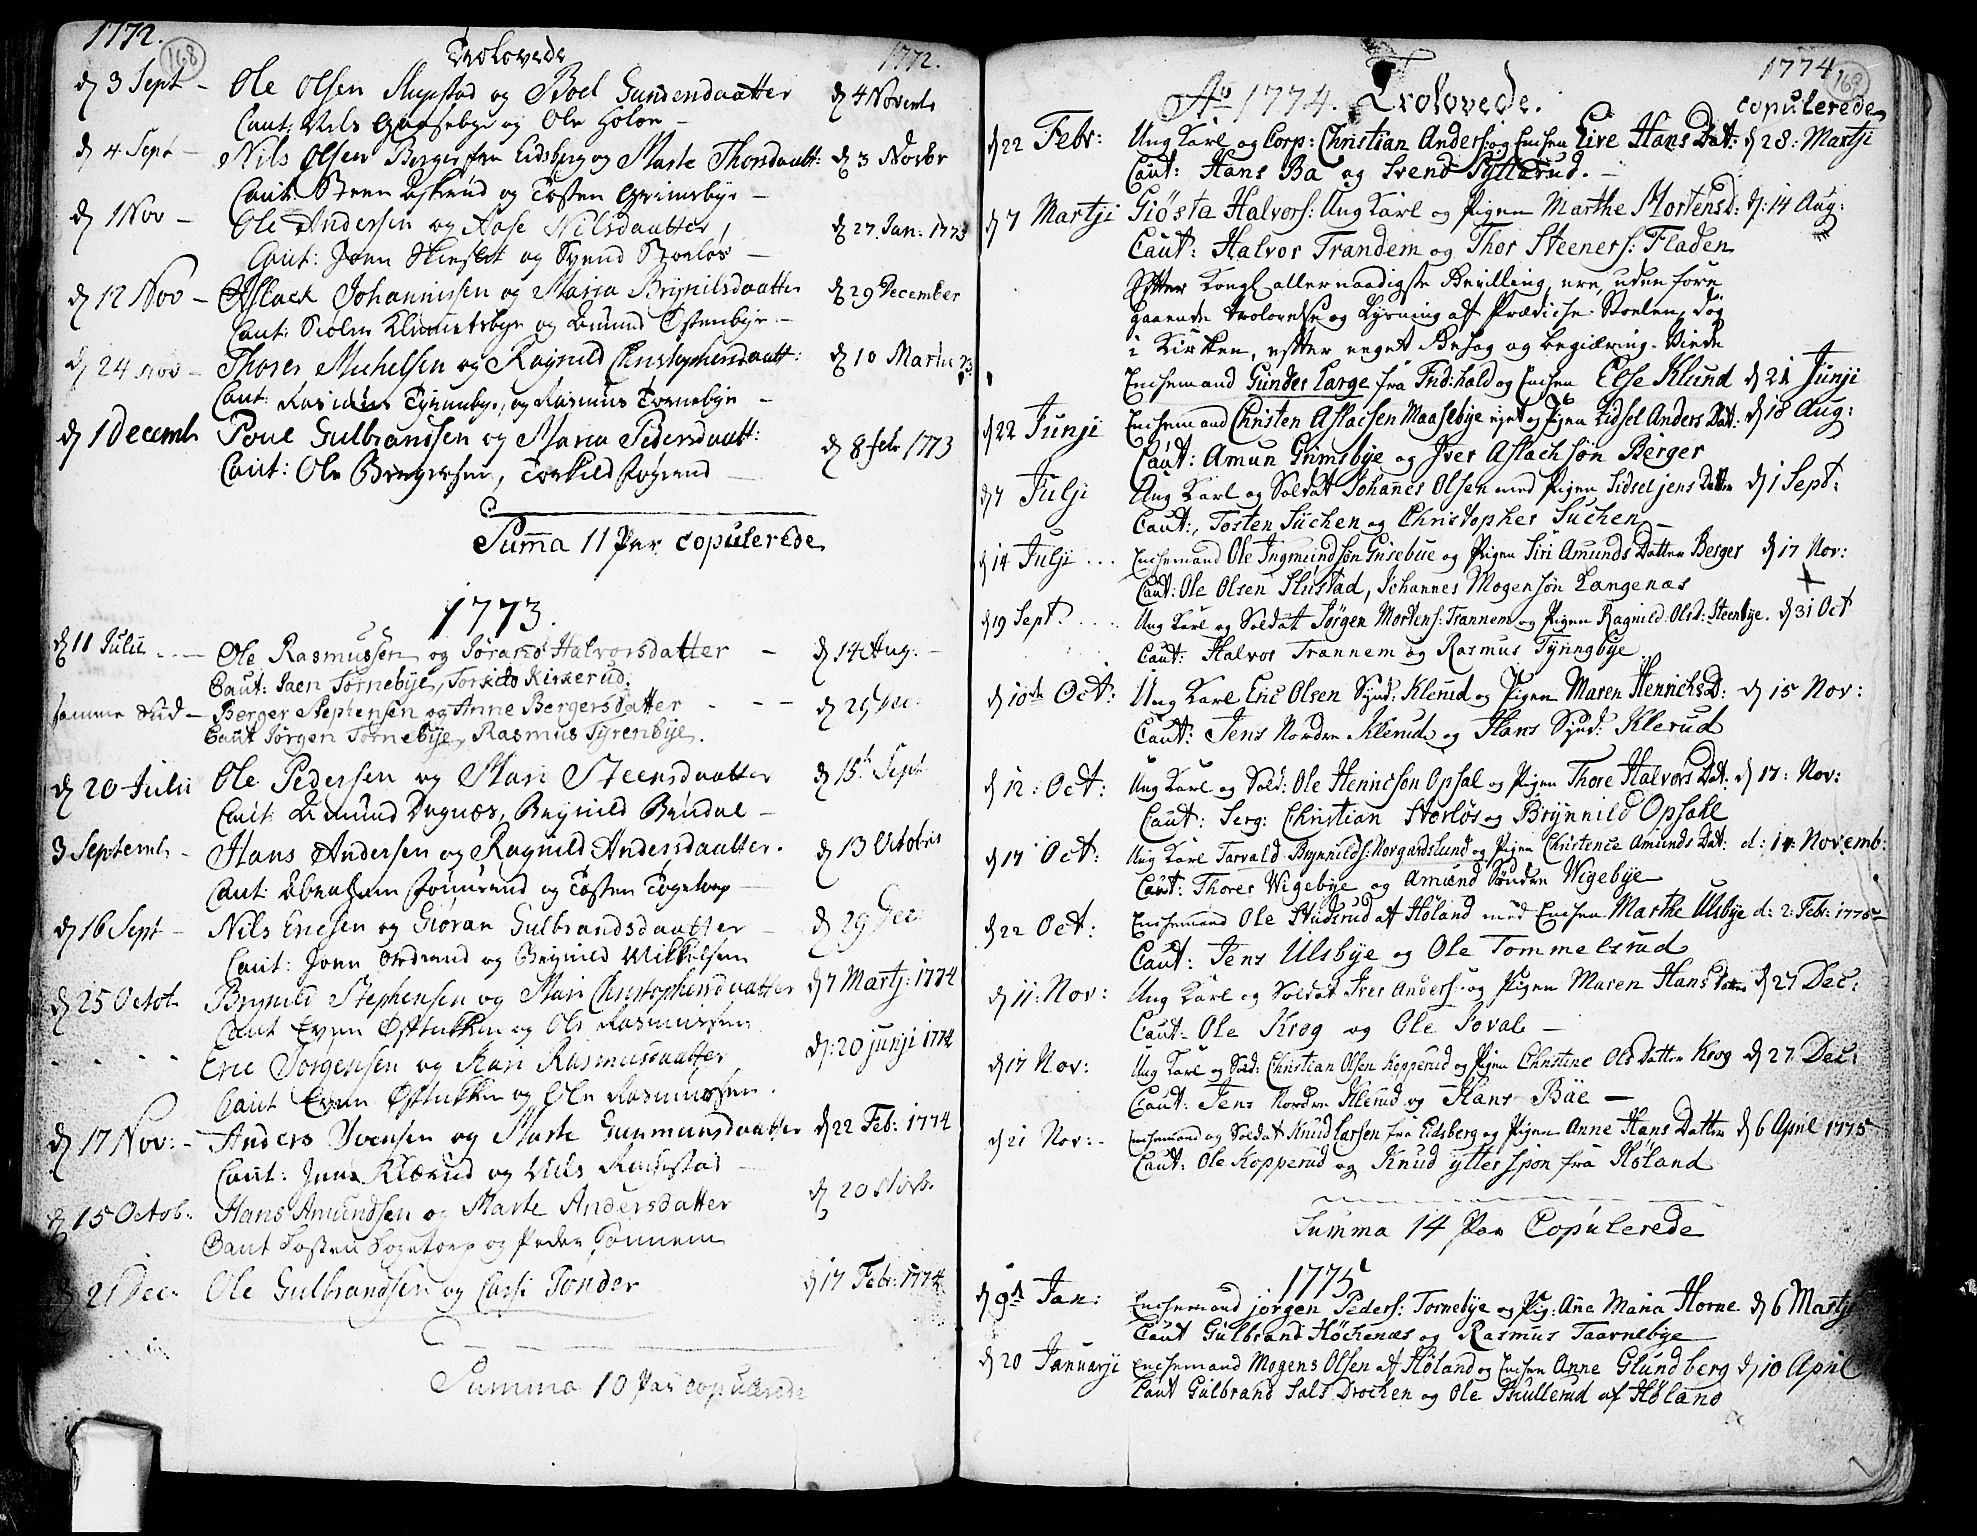 1772.
168
Trolovede
1772.
d 3 Sept - Ole Olsen Slupstad og Boel Gundersdaatter d 4 Novemb
Caut: Nils Gaasebye og Ole Holøe -
d 4 Sept - Nils Olsen Berger fra Eidsberg og Marte Thorsdaatt: d 3 Novbr
Caut: Steen Eskerud og Tosten Grimsbye -
d 1 Nov - Ole Andersen og Aase Nilsdaatter, d 27 Jan: 1773
Caut: Joen og Svend Storløs -
d 12 Nov - Aslack Johannissen og Maria Brynilsdaatter d 29 December
Caut: Klemetsbye og Amund Østenbye -
d 24 Nov - Thores Michelsen og Ragnild Christophersdaatt: d 10 Martii 73
Caut: Rasmus Tyrenbye, og Rasmus Tornebye -
d 1 Decemb Poul Gulbrandssen og Maria Pedersdaatt: d 8 febr 1773
Caut: Ole Bergersen, Torkild
Summa 11 Par copulerede
1773.
d 11 Julii - Ole Rasmussen og Jørand Halvorsdatter - d 14 Aug. -
Caut: Jaen Tornebye, Torkild Kirkerud.
samme Tiid - Berger Stephensen og Anne Bergersdatter - - - d 29 Dec:
Caut Jørgen Tornebye, Rasmus Tyrenbye.
d 20 Julii Ole Pedersen og Mari Steensdaatter d 15 Sept
Caut: Amund Dognæs, Brynild Bøndal -
3 Septemb - Hans Andersen og Ragnild Andersdaatter. d 13 Octobris
Caut: Abraham og Tosten Togstorp -
d 16 Sept - Nils Ericsen og Giøran Gulbrandsdaatter - d 29 Dec
Caut: Joen og Brynild Mikkelsen
d 25 Octob Brynild Stephensen og Mari Christophersdaatter d 7 Martj: 1774
Caut Even Østtukken og Ole Rasmussen
- - - - Eric Jørgensen og Kari Rasmusdaatter d: 20 junji 1774
Caut Even Østtukken og Ole Rasmussen.
d 17 Nov: - Anders Svensen og Marte Gunmunsdaatter d 22 Feb: 1774
Caut: Jens Klærud og Nils
d 15 Octob: Hans Amundsen og Marte Andersdatter d 20 Novb.
Caut Tosten Togstorp og Peder Tønnem
d 21 Dec: Ole Gulbrandsen og Cassi Tønder d 17 Febr: 1774
Summa 10 Par copulerede
1774
168
Ao 1774. Trolovede. copulerede
d 22 Febr: Ung Karl og Corp: Christian Anders: og Enchen Live Hans Dat: d 28: Martji
Caut: Hans Ba og Svend Syllerud. -
d 7 Martji Giøsta Halvors: Ung Karl og Pigen Marthe Mortensd: d: 14 Aug:
Caut: Halvor Trandem og Thor Steeners: Fladen
Efter Kongl allernaadigste Bevilling, ere, uden fore
gaaende Trolovelse og Lysning af Prædiche-Stoelen, dog
i Kirken, efter eget Behag og begiæring - Viede
Enchemand Gunder Large fra Frid:hald og Enchen Else Klund d 21 Junji
d 22 Junji Enchemand Christen Aslacsen Maasebye og Pigen Sidsel Anders Dat: d 18 Aug:
Caut: Amun Grimsbye og Iver Aslachsøn Berger
d 7 Julji Ung Karl og Soldat Johanes Olsen med Pigen Sidsel Jens Datter d 1 Sept:
Caut:, Tosten Suchen og Christopher Suchen -
d 14 Julji ... Enchemand Ole Ingmundsøn Grisebue og Pigen Siri Amunds Datter Berger d 17 Nov:
Caut: Ole Olsen Slustad, Johannes Mogensøn Langenæs
d 19 Sept. .... Ung Karl og Soldat Jørgen Mortens: Trannem og Pigen Ragnild Olsd: Steenbye. d 31 Oct
Caut: Halvor Trannem og Rasmus Tynngbye
d 10de Oct: Ung Karl Eric Olsen Synd: Klerud og Pigen Maren Henrichs D: d 15 Nov:
Caut: Jens Nordre Klerud og Hans Synd: Klerud
d 12: Oct: Ung Karl og Sold: Ole Henricson Opsal og Pigen Thore Halvors Dat: d 17: Nov:
Caut: Serg: Christian Storløs og Brynnild Opsahl
d 17 Oct: Ung Karl Tarvald Brynnilds: Norgardslund og Pigen Christence Amunds Dat: d: 14 Novemb:
Caut: Thores Wigebye og Amund Søndre Wigebye
d 22 Oct: Enchemand Ole Studsrud af Høland med Enchen Marthe Ulsbye d: 2: Febr: 1775
Caut: Jens Ulsbye og Ole Tommelsrud
d 11: Nov: Ung Karl og Soldat Iver Anders: og Pigen Maren Hans Datter d 27 Dec:
Caut: Ole Krog og Ole Joval -
d 17 Nov: Ung Karl og Sold: Christian Olsen Kopperud og Pigen Christine Ols Datter Krog d 27 Dec:
Caut: Jens Nordre Klerud og Hans Bäe -
d 21 Nov: - Enchemand og Soldat Knud Larsen fra Eidsberg og Pigen Anne Hans Datter d 6 April 1775
Caut: Ole Kopperud og Knud ytterspon fra Høland
Summa 14 Par Copulerede
1775
d 9de Jan: Enchemand jørgen Peders: Tornebye og Pig: Ane Maria Horne d 6 Martji
Caut Gulbrand Høchenæs og Rasmus Taarnebye
d 20 Januarji Enchemand Mogens Olsen af Høland og Enchen Anne Glundberg d 10 April
Caut Gulbrand Sals Drochen og Ole Skullerud af Høland